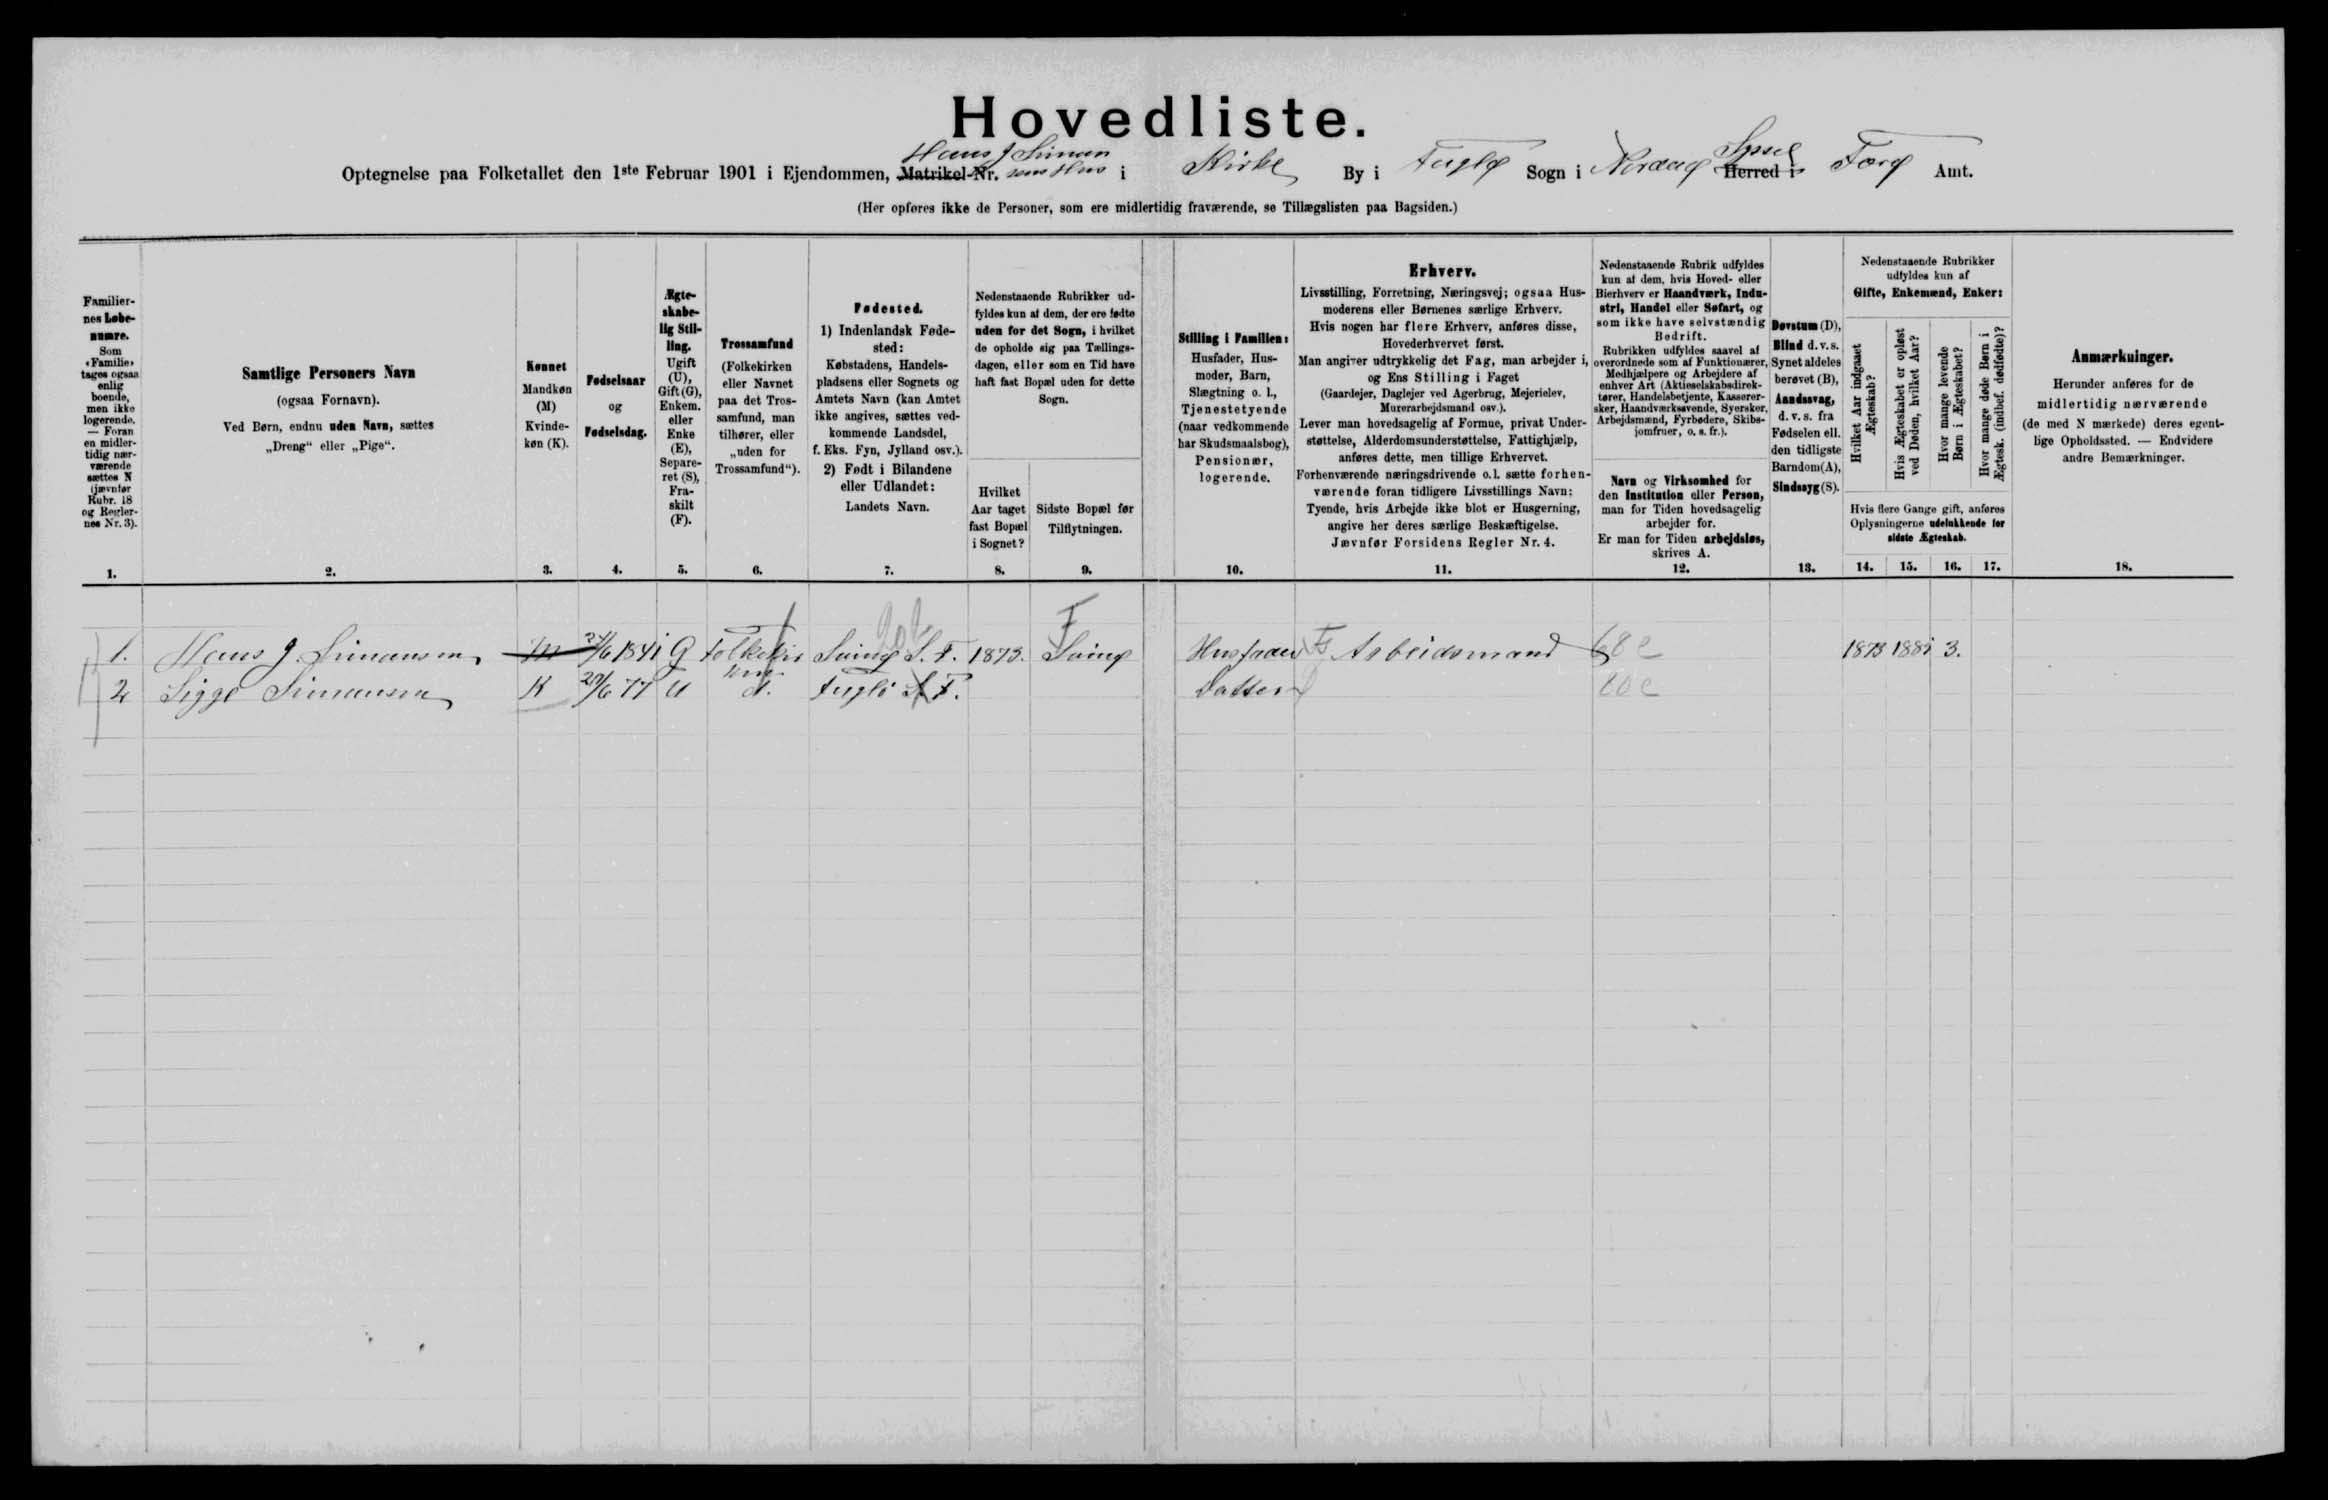 Hovedliste.
Hans J Simon
Optegnelse paa Folketallet den 1ste Februar 1901 i Ejendommen, Matrikel-Nr. sens Hus i Kirke By i Fuglø Sogn i Norderø Syssel Herred i Færø Amt.
(Her opføres ikke de Personer, som ere midlertidig fraværende, se Tillægslisten paa Bagsiden.)
Familiernes Løbenumre.
Som «Familie» tages ogsaa enlig boende, men ikke logerende. — Foran en midlertidig nærværende sættes N (jævnfør Rubr. 18 og Reglernes Nr. 3).
1.
Samtlige Personers Navn
(ogsaa Fornavn).
Ved Børn, endnu uden Navn, sættes
„Dreng“ eller „Pige“.
2.
Kønnet
Mandkøn (M) Kvindekøn (K).
3.
Fødselsaar
og
Fødselsdag.
4.
Ægteskabelig Stilling.
Ugift (U), Gift (G), Enkem. eller Enke (E), Separeret (S), Fraskilt (F).
5.
Trossamfund
(Folkekirken eller Navnet paa det Trossamfund, man tilhører, eller „uden for Trossamfund“).
6.
Fødested.
1) Indenlandsk Fødested:
Købstadens, Handelspladsens eller Sognets og Amtets Navn (kan Amtet ikke angives, sættes vedkommende Landsdel, f. Eks. Fyn, Jylland osv.).
2) Født i Bilandene eller Udlandet:
Landets Navn.
7.
Nedenstaaende Rubrikker udfyldes kun af dem, der ere fødte uden for det Sogn, i hvilket de opholde sig paa Tællingsdagen, eller som en Tid have haft fast Bopæl uden for dette Sogn.
Hvilket Aar taget fast Bopæl i Sognet?
8.
Sidste Bopæl før Tilflytningen.
9.
Stilling i Familien:
Husfader, Husmoder, Barn, Slægtning o. l., Tjenestetyende (naar vedkommende har Skudsmaalsbog), Pensionær, logerende.
10.
Erhverv.
Livsstilling, Forretning, Næringsvej; ogsaa Husmoderens eller Børnenes særlige Erhverv.
Hvis nogen har flere Erhverv, anføres disse, Hovederhvervet først.
Man angiver udtrykkelig det Fag, man arbejder i, og Ens Stilling i Faget
(Gaardejer, Daglejer ved Agerbrug, Mejerielev, Murerarbejdsmand osv.).
Lever man hovedsagelig af Formue, privat Understøttelse, Alderdomsunderstøttelse, Fattighjælp, anføres dette, men tillige Erhvervet.
Forhenværende næringsdrivende o. l. sætte forhenværende foran tidligere Livsstillings Navn;
Tyende, hvis Arbejde ikke blot er Husgerning, angive her deres særlige Beskæftigelse.
Jævnfør Forsidens Regler Nr. 4.
11.
Nedenstaaende Rubrik udfyldes kun af dem, hvis Hoved- eller Bierhverv er Haandværk, Industri, Handel eller Søfart, og som ikke have selvstændig Bedrift.
Rubrikken udfyldes saavel af overordnede som af Funktionærer, Medhjælpere og Arbejdere af enhver Art (Aktieselskabsdirektører, Handelsbetjente, Kasserersker, Haandværkssvende, Syersker, Arbejdsmænd, Fyrbødere, Skibsjomfruer, o. s. fr.).
Navn og Virksomhed for den Institution eller Person, man for Tiden hovedsagelig arbejder for.
Er man for Tiden arbejdsløs, skrives A.
12.
Døvstum (D), Blind d. v. s. Synet aldeles berøvet (B), Aandssvag, d. v. s. fra Fødselen ell. den tidligste Barndom (A), Sindssyg (S).
13.
Nedenstaaende Rubrikker udfyldes kun af
Gifte, Enkemænd, Enker:
Hvilket Aar indgaaet Ægteskab?
Hvis Ægteskabet er opløst ved Døden, hvilket Aar?
Hvor mange levende Børn i Ægteskabet?
Hvor mange døde Børn i Ægtesk. (indbef. dødfødte)?
Hvis flere Gange gift, anføres Oplysningerne udelukkende for sidste Ægteskab.
14. 15. 16. 17.
Anmærkninger.
Herunder anføres for de midlertidig nærværende (de med N mærkede) deres egentlige Opholdssted. — Endvidere andre Bemærkninger.
18.
1. Hans J. Simonsen M 1841 G Folkekir Svinø S. F. 1873. Svinø Husfader Arbeidsmand 1873 3.
2 Sigge Simonsen K 77 U d. Fuglø F. Datter